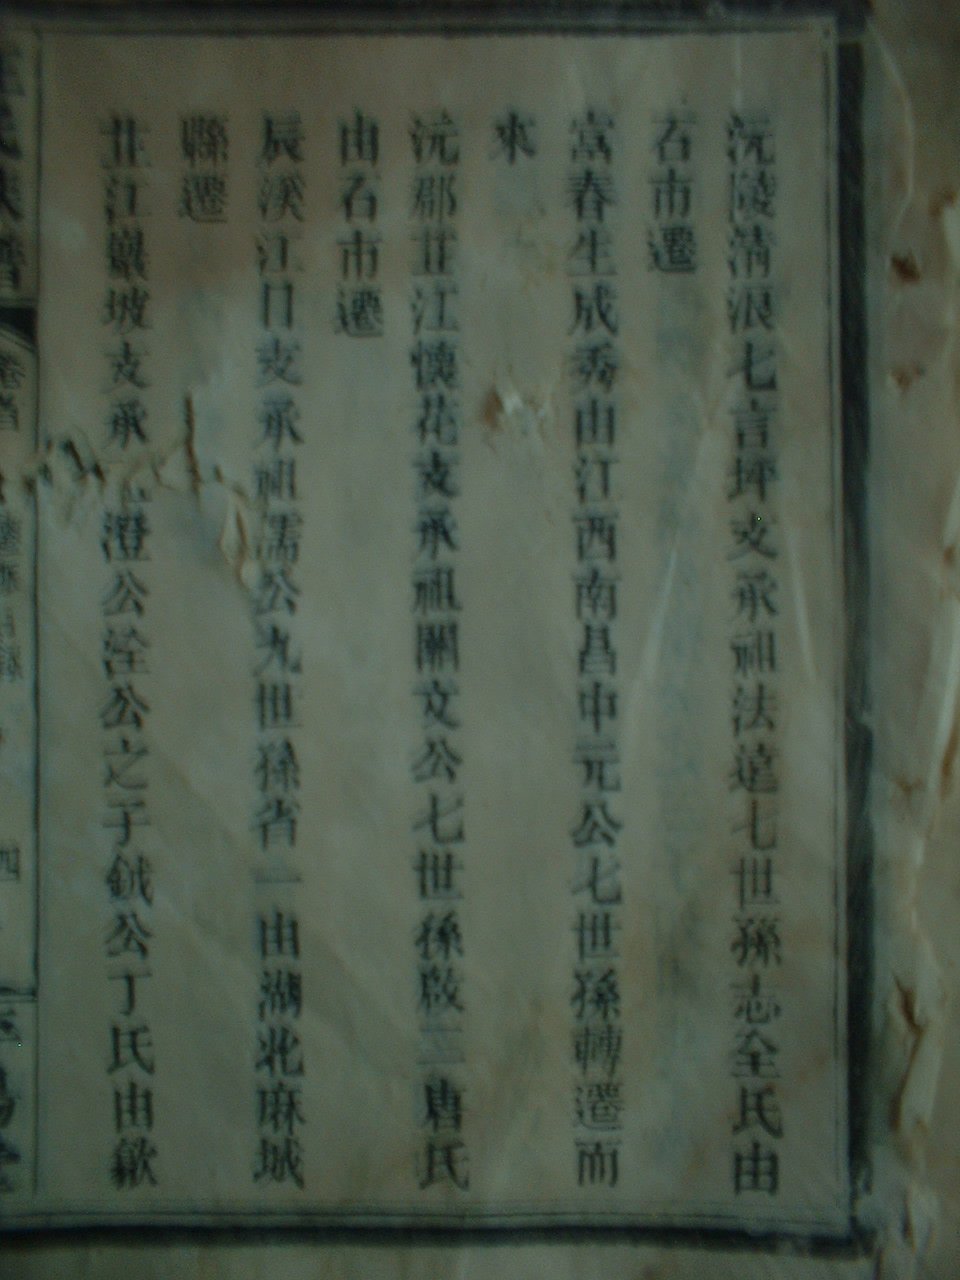 沅陵清浪七言坪支承祖法遠七世孫志全氏由
石市遷
富春生成秀由江西南昌中元公七世孫轉遷而
來
沅郡苴江懷花支承祖關文公七世孫啟二唐氏
由石市遷
辰溪江口支承祖濡公九世孫省一由湖北麻城
縣遷
苴江巖坡支承澄公淦公之子鉞公丁氏由歙
卷首
四